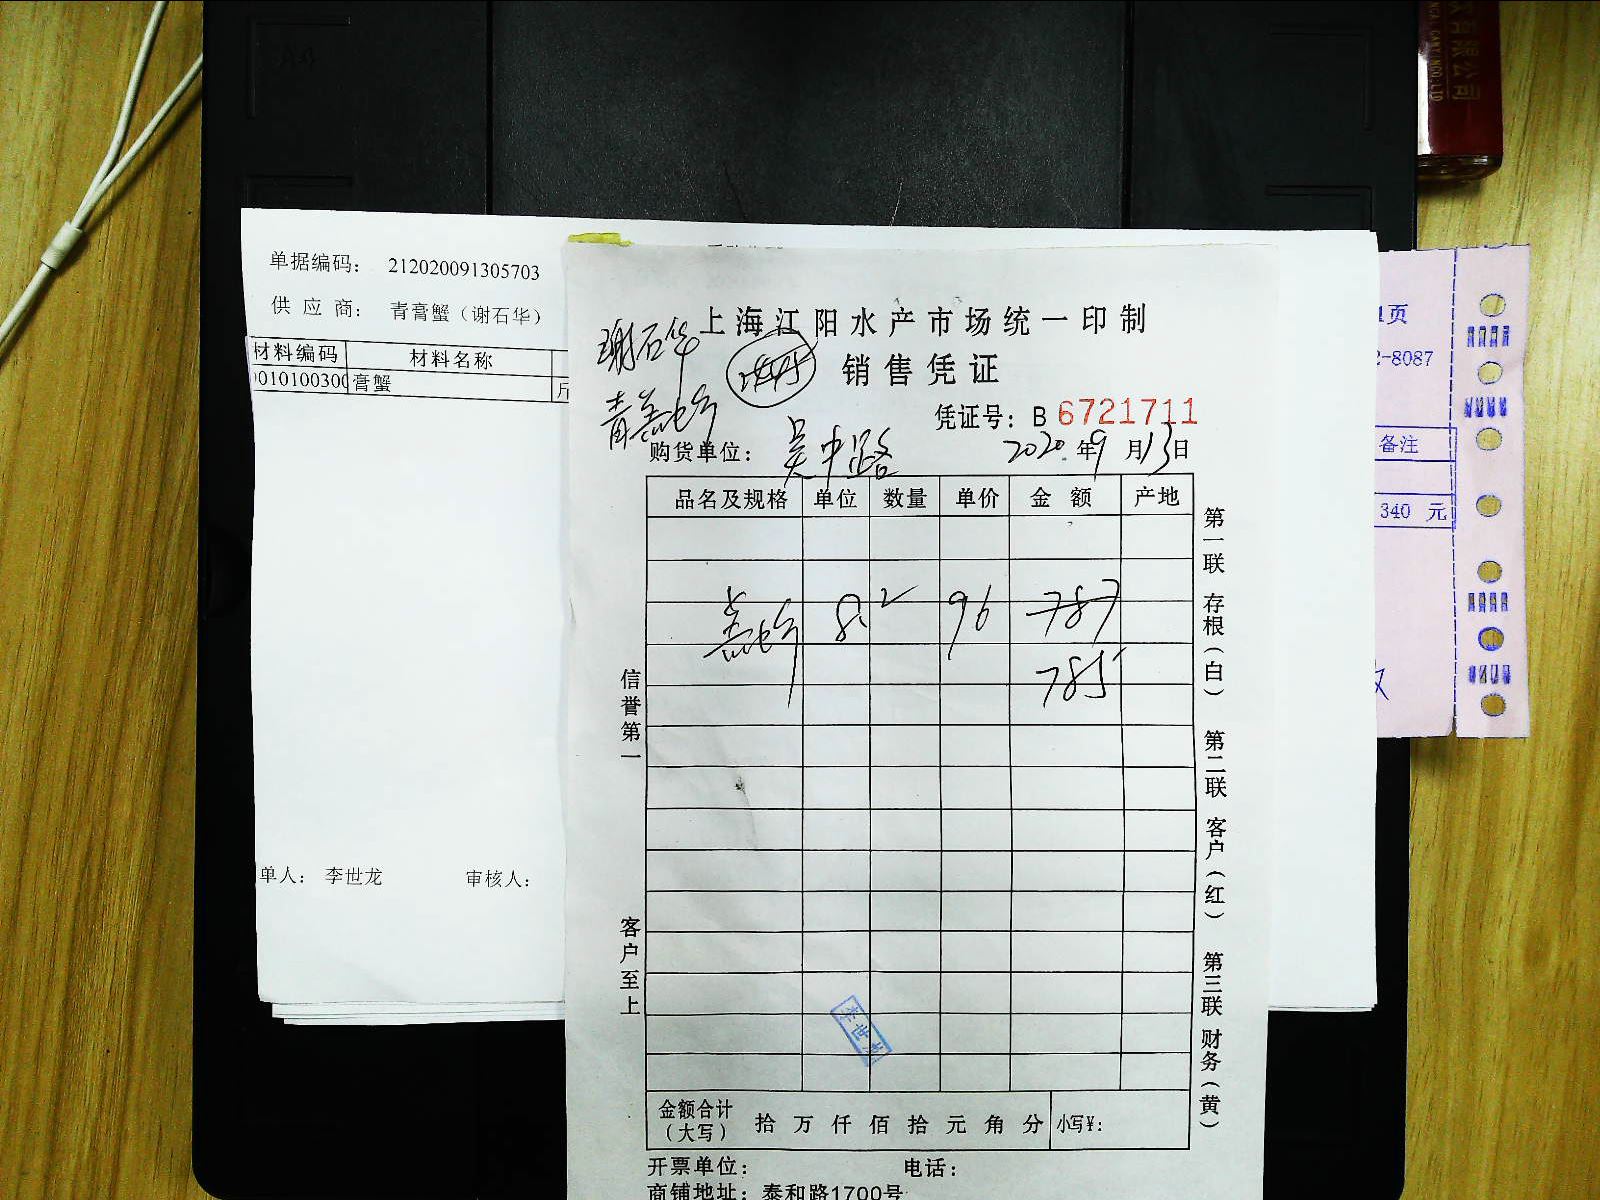 有限公司
单据编码： 212020091305703
供 应 商： 青膏蟹（谢石华）
材料编码 材料名称
0101003000 膏蟹 斤
单人： 李世龙 审核人：
谢石华
青膏蟹
上海江阳水产市场统一印制
销售凭证
凭证号：B 6721711
购货单位： 吴中路 2020 年 9 月 13 日
品名及规格 单位 数量 单价 金 额 产地
膏蟹 8.2 96 787
785
信誉第一
客户至上
李世龙
第一联 存根（白） 第二联 客户（红） 第三联 财务（黄）
金额合计（大写） 拾 万 仟 佰 拾 元 角 分 小写¥：
开票单位： 电话：
商铺地址： 泰和路1700号
1页
2-8087
备注
340 元